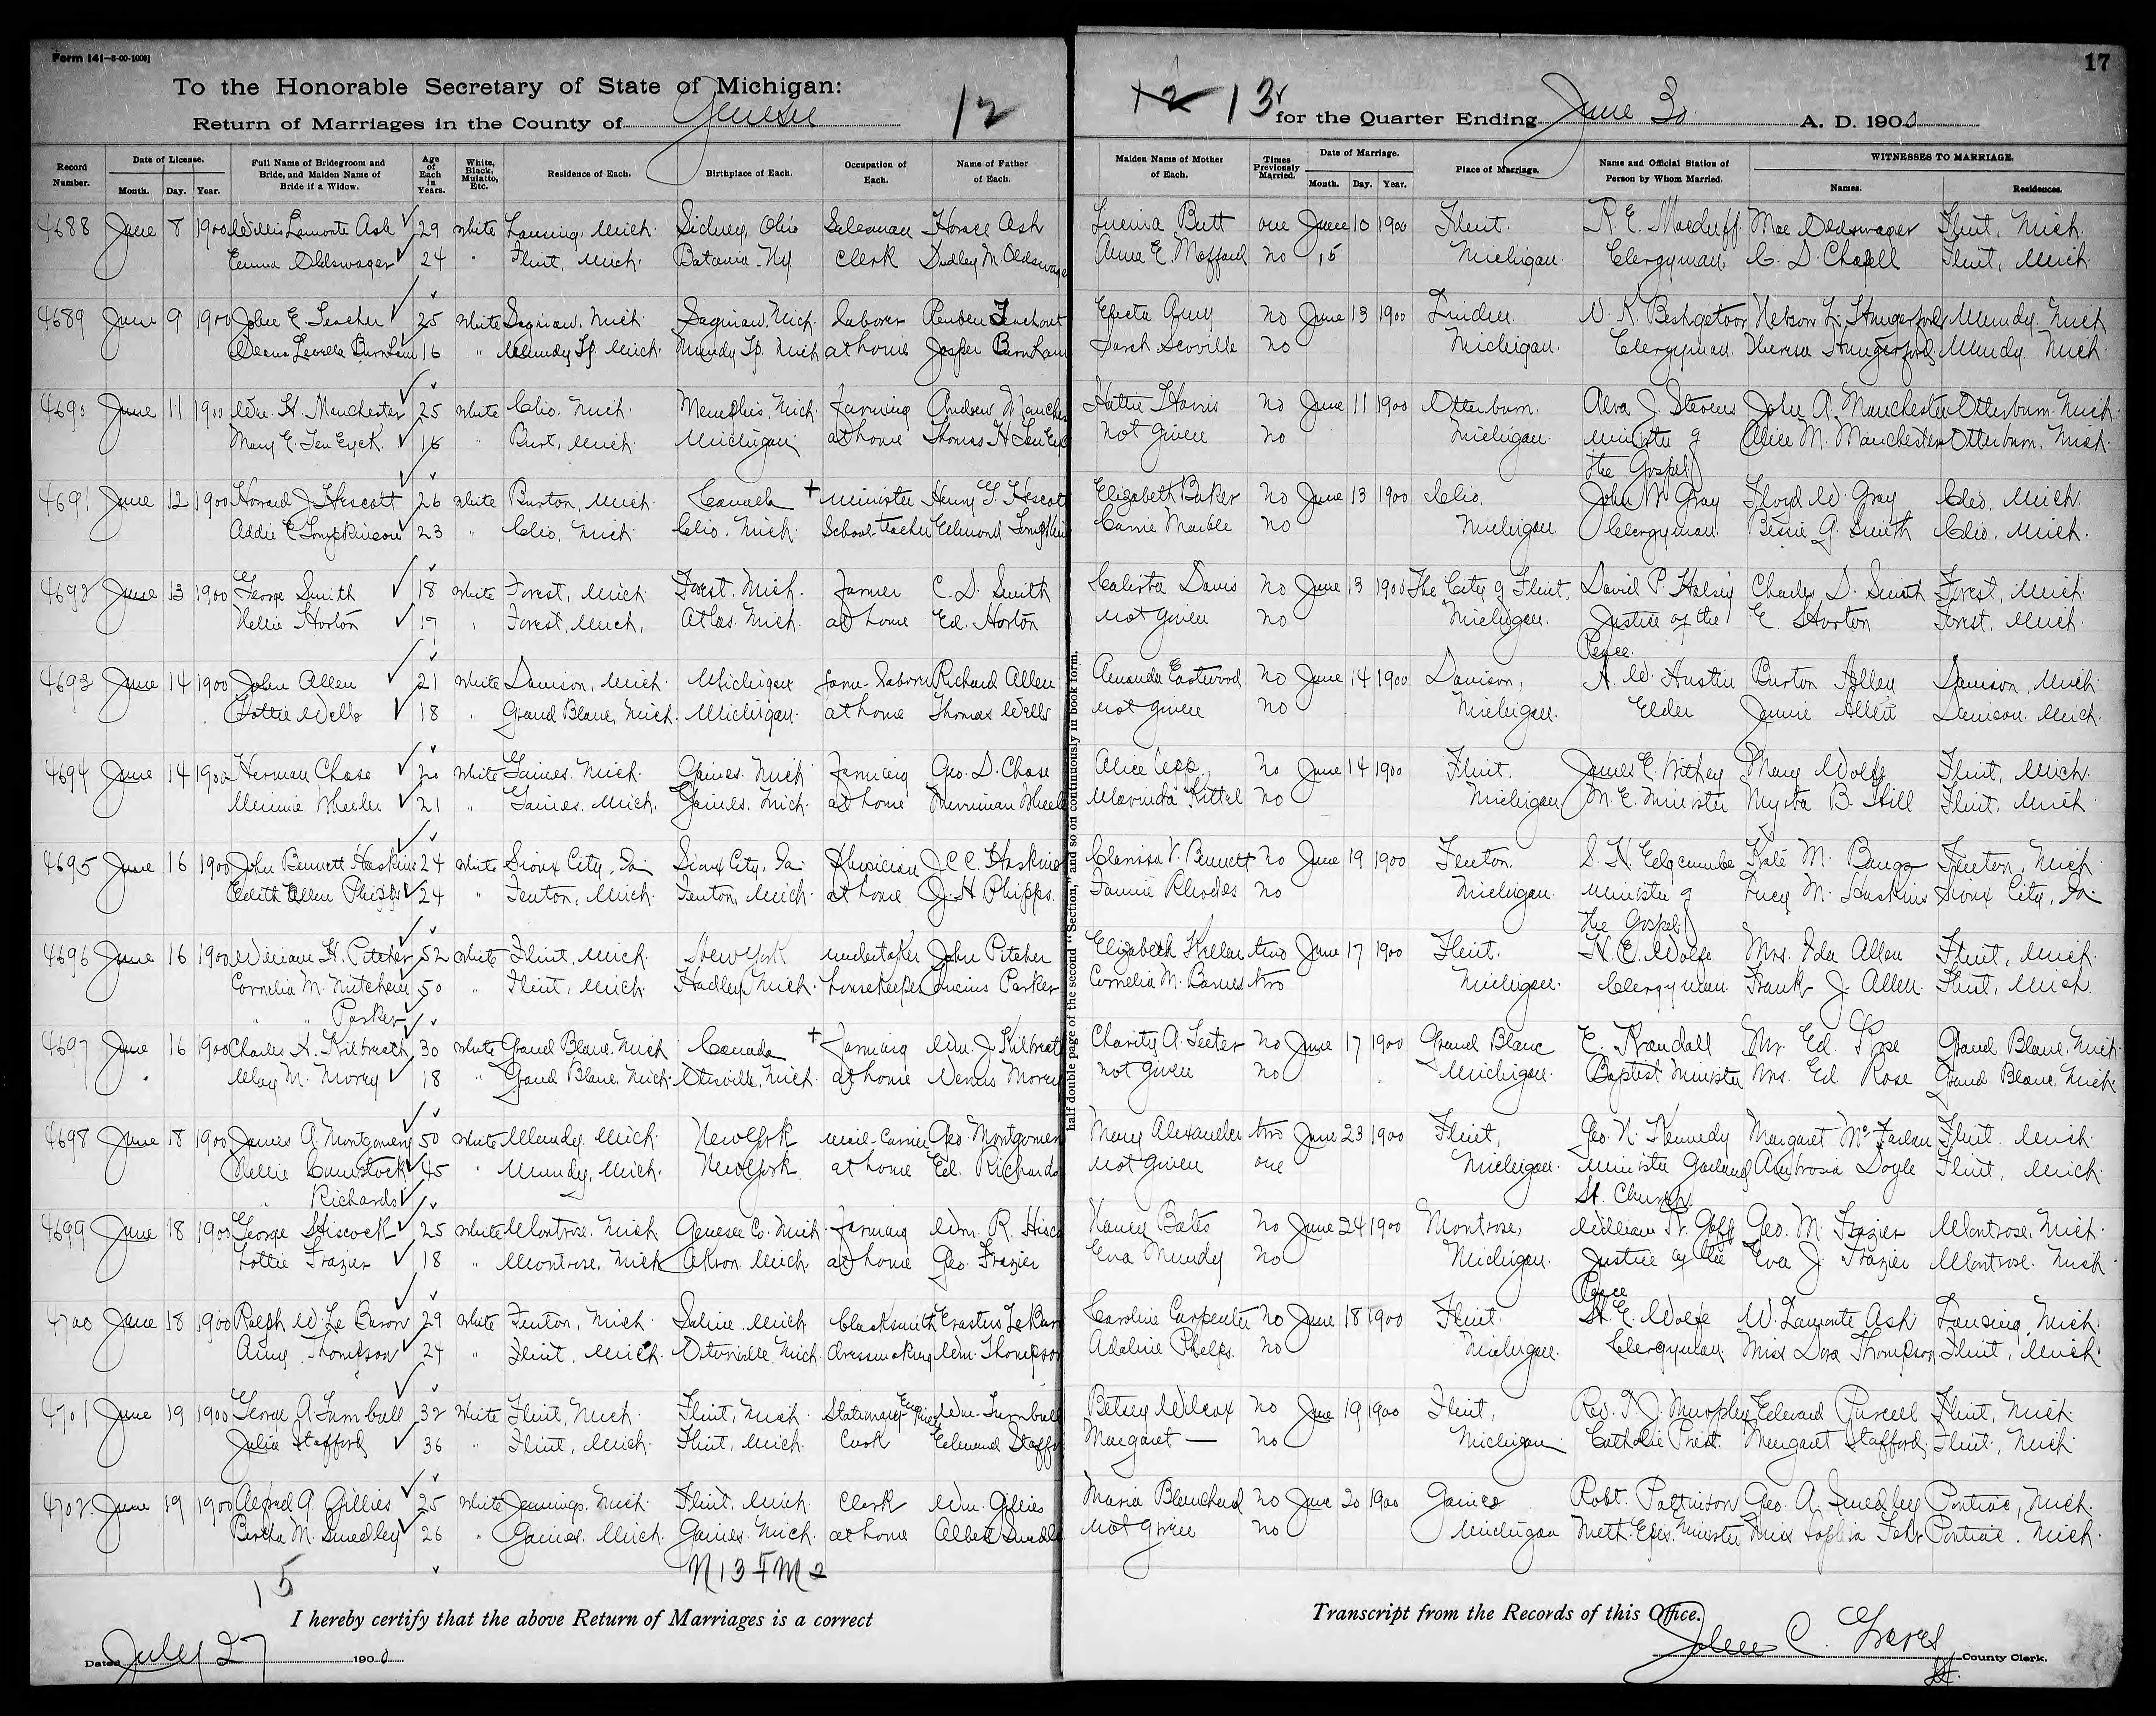 Form 141—3-00-1000]
To the Honorable Secretary of State of Michigan:
Return of Marriages in the County of Genesee 12
12 13 for the Quarter Ending June 30 A. D. 1900
17
Record Number. Date of License. Month. Day. Year. Full Name of Bridegroom and Bride, and Maiden Name of Bride if a Widow. Age of Each in Years. White, Black, Mulatto, Etc. Residence of Each. Birthplace of Each. Occupation of Each. Name of Father of Each. Maiden Name of Mother of Each. Times Previously Married. Date of Marriage. Month. Day. Year. Place of Marriage. Name and Official Station of Person by Whom Married. WITNESSES TO MARRIAGE. Names. Residences.
4688 June 8 1900 Willis Lamonte Ash 29 White Lansing, Mich. Sidney, Ohio Salesman Horace Ash Butt one June 10 1900 Flint. R. E. Macduff Mae Oldswager Flint, Mich.
Emma Oldswager 24 " Flint, Mich. Batavia, Ny Clerk Dudley M. Oldswage Anna E. Mafford no 15 Michigan. Clergyman. C. D. Chapell Flint, Mich.
4689 June 9 1900 John E. 25 White Saginaw, Mich. Saginaw, Mich. Laborer Reuben Electa Amy no June 13 1900 Linden. Nelson Hungerford Mundy, Mich.
Burnham 16 " Mundy Tp. Mich. Mundy Tp. Mich at home Jasper Burnham Sarah Scoville no Michigan. Clergyman. Theresa Hungerford Mundy Mich.
4690 June 11 1900 Wm. H. Manchester 25 White Clio. Mich. Memphis, Mich. Farming Andrew Manches Hattie Harris no June 11 1900 Otterburn. Alva J. Stevens John A. Manchester Otterburn, Mich.
Mary E. Ten Eyck 16 " Burt, Mich. Michigan. at home Thomas H Ten Eyc not given no Michigan. minister of Alice M. Manchester Otterburn, Mich.
the Gospel
4691 June 12 1900 Howard J. Hescott 26 White Burton, Mich. Canada + minister Henry G. Hescott Elizabeth Baker no June 13 1900 Clio, John W Gray Floyd W. Gray Clio, Mich.
Addie E Tompkinson 23 " Clio, Mich. Clio. Mich. School-teacher Edmond Carrie Marble no Michigan. Clergyman. Bessie A. Smith Clio, Mich.
4692 June 13 1900 George Smith 18 White Forest, Mich. Forest, Mich. Farmer C. D. Smith Calista Davis no June 13 1900 The City of Flint, David P. Halsey Charles D. Smith Forest, Mich.
Nellie Horton 17 " Forest, Mich. Atlas. Mich. at home Ed. Horton not given no Michigan. Justice of the E. Horton Forest, Mich.
Peace.
4693 June 14 1900 John Allen 21 White Davison, Mich. Michigan farm-Laborer Richard Allen Amanda Eastwood no June 14 1900 Davison, A. W. Hustin Burton Allen Davison, Mich.
Lottie Wells 18 " Grand Blanc, Mich. Michigan at home Thomas Wells not given no Michigan. Elder Jennie Allen Davison. Mich.
4694 June 14 1900 Herman Chase 20 White Gaines. Mich. Gaines. Mich. Farming Geo. D. Chase Alice Upp. no June 14 1900 Flint, James E. Withey Mary Wolfe Flint, Mich.
Minnie Wheeler 21 " Gaines. Mich. Gaines. Mich. at home Merriman Wheele Marinda Kittel no Michigan M. E. Minister Myrta B. Hill Flint, Mich.
4695 June 16 1900 John Bennett Haskins 24 White Sioux City, Ia Sioux City, Ia Physician J. C. C. Haskins Clarissa V. Bennett no June 19 1900 Fenton. S. N. Edgcumbe Kate M. Bangs Fenton, Mich.
Edith Allen Phipps 24 " Fenton, Mich. Fenton, Mich. at home J. H. Phipps. Fannie Rhodes no Michigan. minister of Lucy M. Haskins Sioux City, Ia
the Gospel
4696 June 16 1900 William H. Pitcher 52 White Flint, Mich. New York undertaker John Pitcher Elizabeth Kellar two June 17 1900 Flint. H. E. Wolfe Mrs. Ida Allen Flint, Mich.
Cornelia M. Mitchell 50 " Flint, Mich. Hadley, Mich. housekeeper Lucius Parker Cornelia M. Barnes two Michigan. Clergyman. Frank J. Allen. Flint, Mich.
" " Parker
4697 June 16 1900 Charles H. Kilbreath 30 White Grand Blanc. Mich Canada + Farming Wm. J. Kilbreat Charity A. Teeter no June 17 1900 Grand Blanc E. Krandall Mr. Ed. Rose Grand Blanc, Mich.
May M. Morey 18 " Grand Blanc, Mich. Otisville, Mich. at home Morey not given no Michigan. Baptist Minister Mrs. Ed Rose Grand Blanc. Mich.
4698 June 18 1900 James A. Montgomery 50 White Mundy, Mich. New York mail-Carrier Geo. Montgomer Mary Alexander two June 23 1900 Flint, Geo. N. Kennedy Margaret McFarlan Flint. Mich.
Nellie Cumstock 45 " Mundy, Mich. New York at home Ed. Richards not given one Michigan. Minister Garland Ambrosia Doyle Flint, Mich
" Richards St. Church
4699 June 18 1900 George Hiscock 25 White Montrose, Mich Genesee Co. Mich. Farming Wm. R. Hisco Nancy Bates no June 24 1900 Montrose, William W. Goff Geo. M. Frazier Montrose, Mich.
Lottie Frazier 18 " Montrose, Mich. Akron. Mich. at home Geo. Frazier Eva Mundy no Michigan. Justice of the Eva J. Frazier Montrose. Mich.
Peace
4700 June 18 1900 Ralph W. Le Baron 29 White Fenton, Mich. Saline. Mich Blacksmith Erastus LeBar Caroline Carpenter no June 18 1900 Flint. H. E. Wolfe W. Lamonte Ash Lansing, Mich.
Amy Thompson 24 " Flint, Mich. Ortonville, Mich. dressmaking Wm. Thompson Adaline Phelps. no Michigan. Clergyman. Miss Dora Thompson Flint, Mich.
4701 June 19 1900 George A Turnbull 32 White Flint, Mich. Flint, Mich. Stationary Engineer Wm. Turnbull Betsey Wilcox no June 19 1900 Flint, Rev. T. J. Murphy Edward Purcell Flint, Mich.
Julia Stafford 36 " Flint, Mich. Flint, Mich. Cook Edmund Staffo Margaret — no Michigan Catholic Priest. Margaret Stafford Flint, Mich
4702. June 19 1900 Alfred A. Gillies 25 White Jennings, Mich. Flint, Mich. Clerk Wm. Gillies Maria Blanchard no June 20 1900 Gaines Robt. Pattinson Geo. A. Smedley Pontiac, Mich.
Bertha M. Smedley 26 " Gaines. Mich. Gaines. Mich. at home Albert Smedle not given no Michigan Meth. Epis. Minister Miss Pontiac. Mich.
15
N 13 F M 2
half double page of the second "Section," and so on continuously in book form.
I hereby certify that the above Return of Marriages is a correct Transcript from the Records of this Office.
Dated July 27 1900
John C. Graves County Clerk.